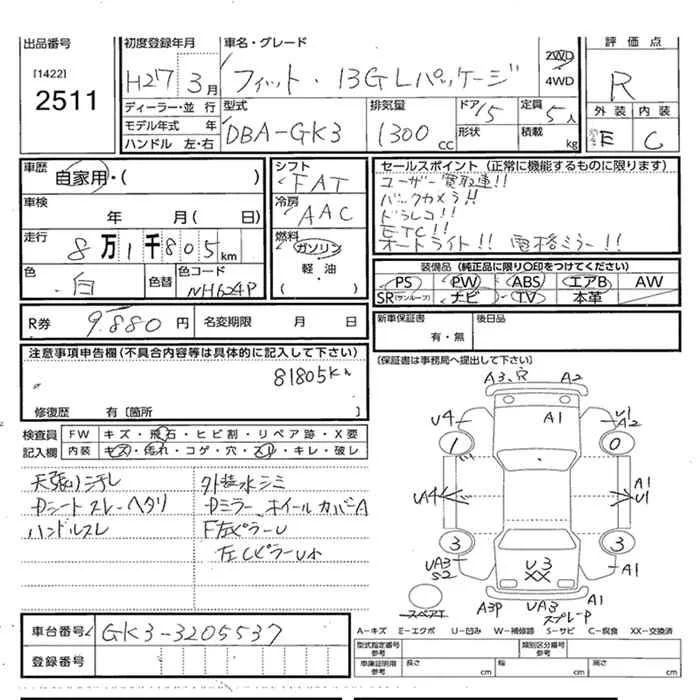 出品番号
[1422]
2511
初度登録年月
H27 3月
車名・グレード
フィット・13G Lパッケージ
2WD
4WD
評価点
R
外装 内装
E C
ディーラー・並行
モデル年式 年
ハンドル 左・右
型式
DBA-GK3
排気量
1300 cc
ドア 5
形状
定員 5人
積載 kg
車歴
自家用・( )
車検
年 月( 日)
走行
8万1千805km
色
白
色替
色コード
NH624P
シフト
FAT
冷房
AAC
燃料
ガソリン
軽・油
( )
セールスポイント (正常に機能するものに限ります)
ユーザー買取車!!
バックカメラ!!
ドラレコ!!
ETC!!
オートライト!! 電格ミラー!!
装備品 (純正品に限り〇印をつけてください)
PS PW ABS エアB AW
SR(サンルーフ) ナビ TV 本革
R券 9,880円 名変期限 月 日
新車保証書
有・無
後日品
(保証書は事務局へ提出して下さい)
注意事項申告欄(不具合内容等は具体的に記入して下さい)
81805km
修復歴 有[箇所 ]
検査員
記入欄
FW キズ・飛石・ヒビ割・リペア跡・X要
内装 キズ・汚れ・コゲ・穴・スリ・キレ・破レ
天張り汚れ
Dシートスレ・ヘタリ
ハンドルスレ
外装水シミ
Dミラー、ホイールカバーA
F左ピラーU
左CピラーU小
A3、穴 A2
U4 A1 U1
A2
1 0
U4 A1
U1
3 3
UA3
S2
U3
XX
A1
スペアT
A3P UA3 A1
スプレーP
A−キズ E−エクボ U−凹み W−補修跡 S−サビ C−腐食 XX−交換済
車台番号 GK3-3205537
登録番号
型式指定番号
参考
類別区分番号
参考
車庫証明用
参考
長さ cm
幅 cm
高さ cm